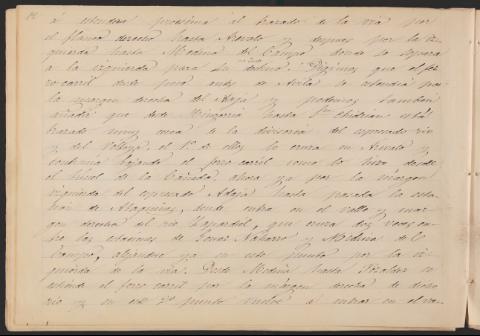 á estendera proxsima al trazado de la via por
el flanco derecho hasta Arevalo y despues por la iz-
quierda hasta Medina del Campo donde se separa
a la izquierda para su destino. Digimos que el fer-
ro-carril desde poco antes de Avila se estendia por
la margen derecha del Adaja y podemos tambien
añadir que desde Mingorria hasta Sn. Chidrian está
trazado muy cerca de la divisoria del espresado rio
y del Voltoya. el 1º de ellos lo cruza en Arevalo y
continúa bajando el ferro carril como lo hizo desde
el túnel de la Cañada, ahora ya por la márgen
izquierda del espresado Adaja hasta pasada la esta-
cion de Ataquines, donde entra en el valle y mar-
gen derecha del rio Zapardiel, que cruza dos veces en-
tre las estaciones de Gomez Naharro y Medina del
Campo, alejandose ya en este punto por la iz-
quierda de la via. Desde Medina hasta Pozaldez se
estiende el ferro carril por la márgen derecha de dicho
rio y en este 2º punto vuelve á entrar en el va-